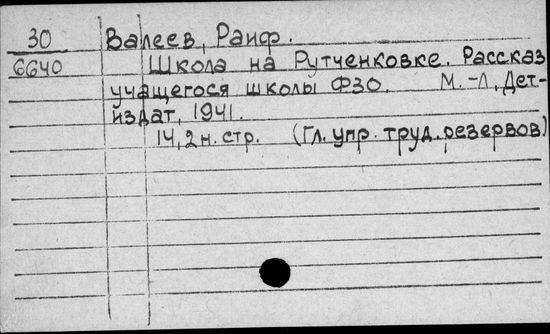 30 Валеев, Раиф.
6640 Школа на Рутченковке. Рассказ
учащегося школы ФЗО. М.-Л, Дет-
издат, 1941.
14, 2 н. стр. (Гл. упр. труд. резервов)